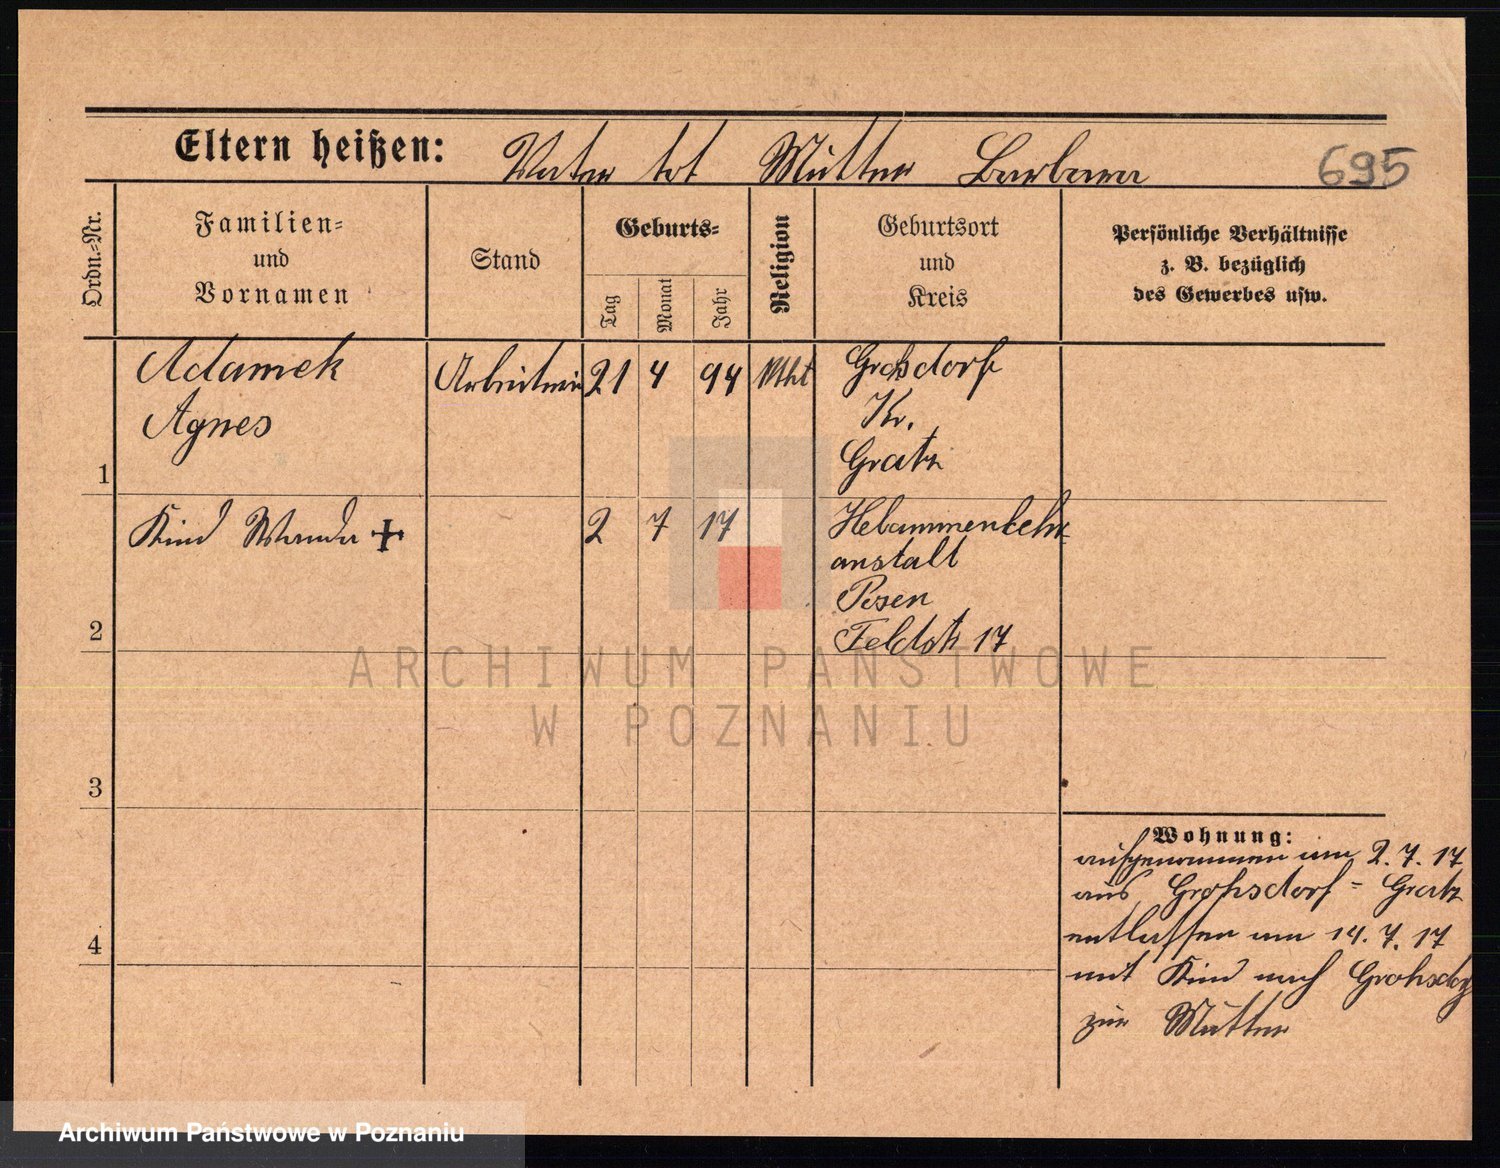 Eltern heißen: Vater tot Mutter Barbara 695
Ordn.-Nr.
Familien-
und
Vornamen
Stand
Geburts-
Tag
Monat
Jahr
Religion
Geburtsort
und
Kreis
Persönliche Verhältnisse
z. B. bezüglich
des Gewerbes usw.
1
Adamek
Agnes
Arbeiterin
21 4 94
Grohsdorf
Kr.
Gratz
2
Kind Wanda +
2 7 17
Hebammenlehr
anstalt
Posen
Feldstr 17
3
4
Wohnung:
aufgenommen am 2. 7. 17
aus Grohsdorf - Gratz
entlassen am 14. 7. 17
mit Kind nach Grohsdorf
zur Mutter
ARCHIWUM PAŃSTWOWE
W POZNANIU
Archiwum Państwowe w Poznaniu